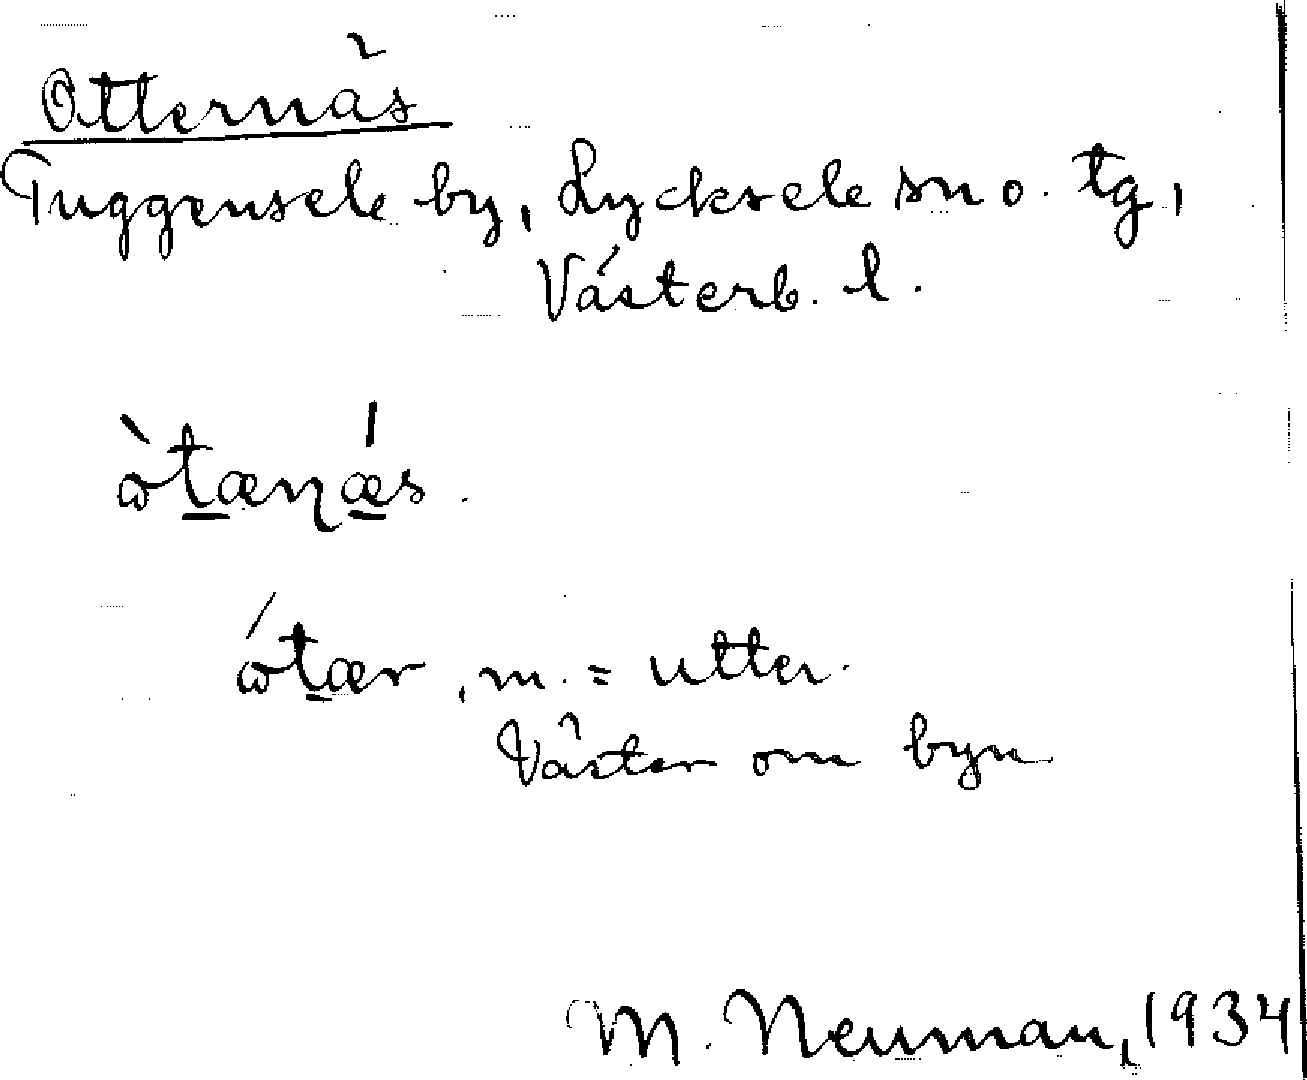 Otternäs
Tuggensele by, Lycksele sn o. tg,
Västerb. l.
òtænǽs.
ótær, m. = utter.
Väster om byn
M. Neuman, 1934